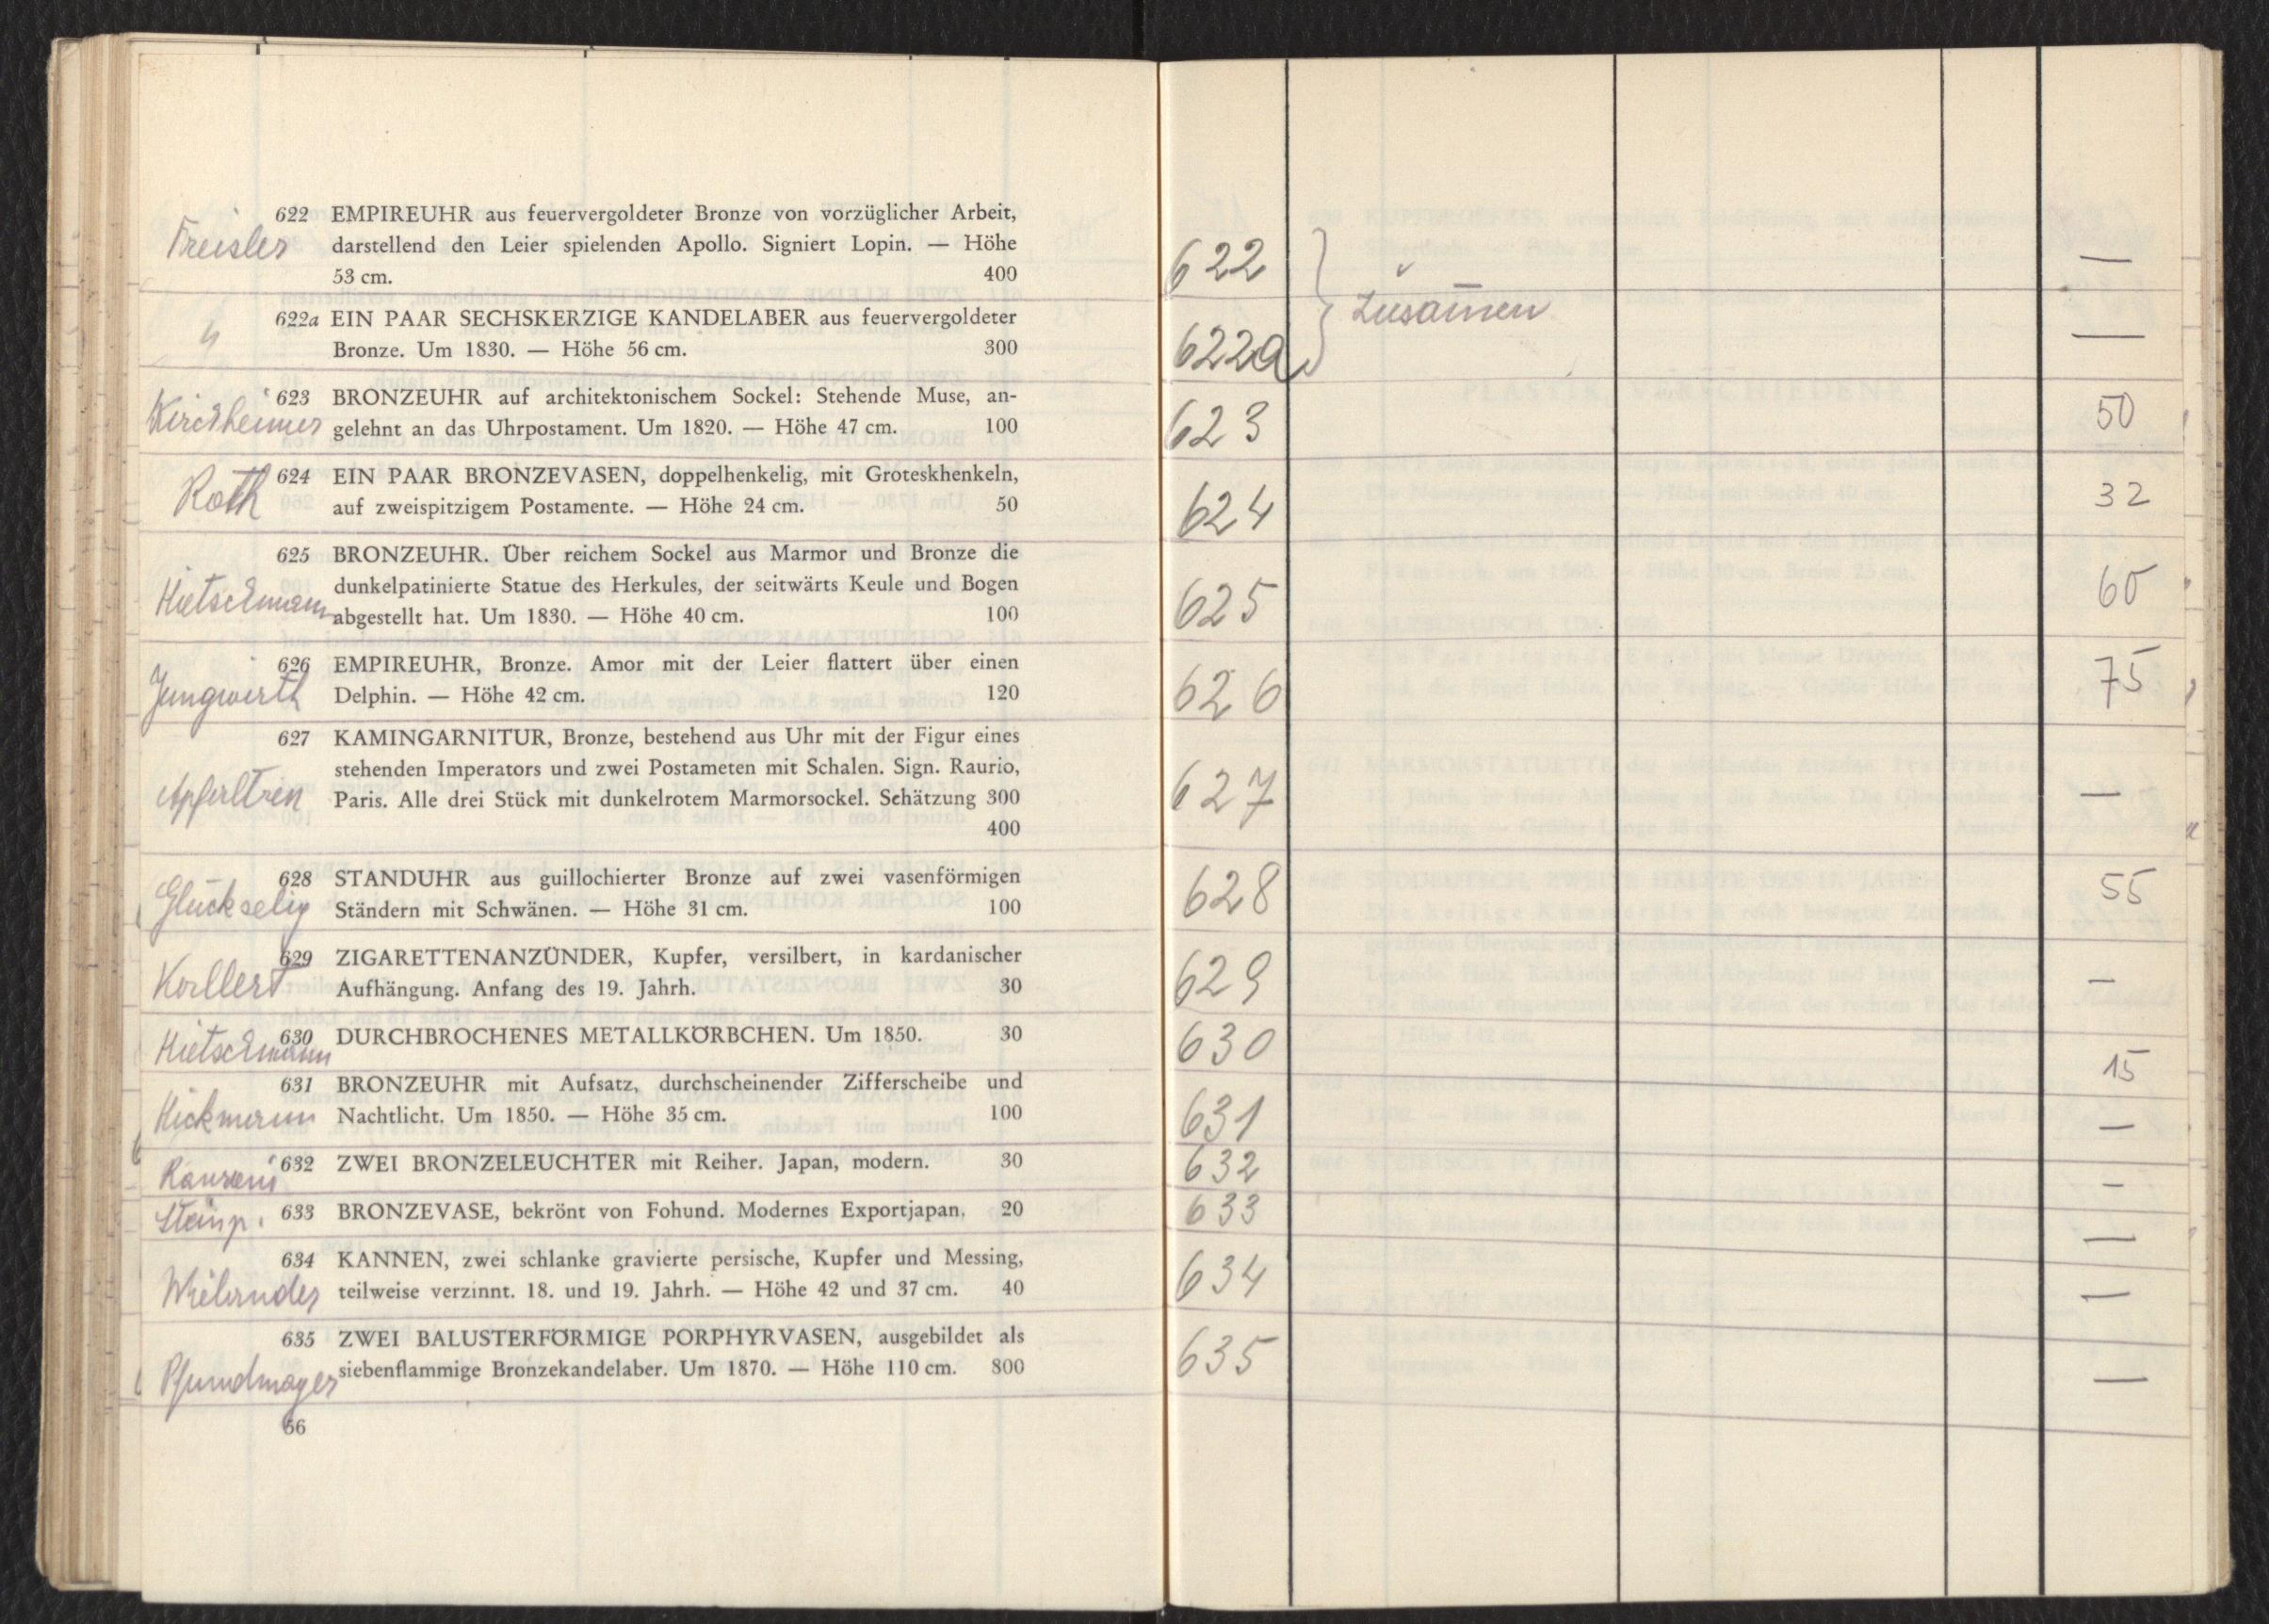 Freisler
622 EMPIREUHR aus feuervergoldeter Bronze von vorzüglicher Arbeit,
darstellend den Leier spielenden Apollo. Signiert Lopin. — Höhe
53 cm. 400
622a EIN PAAR SECHSKERZIGE KANDELABER aus feuervergoldeter
Bronze. Um 1830. — Höhe 56 cm. 300
Kirchheimer
623 BRONZEUHR auf architektonischem Sockel: Stehende Muse, an-
gelehnt an das Uhrpostament. Um 1820. — Höhe 47 cm. 100
Roth
624 EIN PAAR BRONZEVASEN, doppelhenkelig, mit Groteskhenkeln,
auf zweispitzigem Postamente. — Höhe 24 cm. 50
625 BRONZEUHR. Über reichem Sockel aus Marmor und Bronze die
dunkelpatinierte Statue des Herkules, der seitwärts Keule und Bogen
abgestellt hat. Um 1830. — Höhe 40 cm. 100
Jungwirth
626 EMPIREUHR, Bronze. Amor mit der Leier flattert über einen
Delphin. — Höhe 42 cm. 120
627 KAMINGARNITUR, Bronze, bestehend aus Uhr mit der Figur eines
stehenden Imperators und zwei Postameten mit Schalen. Sign. Raurio,
Paris. Alle drei Stück mit dunkelrotem Marmorsockel. Schätzung 300
400
Glückselig
628 STANDUHR aus guillochierter Bronze auf zwei vasenförmigen
Ständern mit Schwänen. — Höhe 31 cm. 100
629 ZIGARETTENANZÜNDER, Kupfer, versilbert, in kardanischer
Aufhängung. Anfang des 19. Jahrh. 30
630 DURCHBROCHENES METALLKÖRBCHEN. Um 1850. 30
631 BRONZEUHR mit Aufsatz, durchscheinender Zifferscheibe und
Nachtlicht. Um 1850. — Höhe 35 cm. 100
632 ZWEI BRONZELEUCHTER mit Reiher. Japan, modern. 30
633 BRONZEVASE, bekrönt von Fohund. Modernes Exportjapan. 20
634 KANNEN, zwei schlanke gravierte persische, Kupfer und Messing,
teilweise verzinnt. 18. und 19. Jahrh. — Höhe 42 und 37 cm. 40
Pfundmayer
635 ZWEI BALUSTERFÖRMIGE PORPHYRVASEN, ausgebildet als
siebenflammige Bronzekandelaber. Um 1870. — Höhe 110 cm. 800
66
622 —
zusam̄en
622a —
623 50
624 32
625 60
626 75
627 —
628 55
629 —
630 15
631 —
632 —
633 —
634 —
635 —